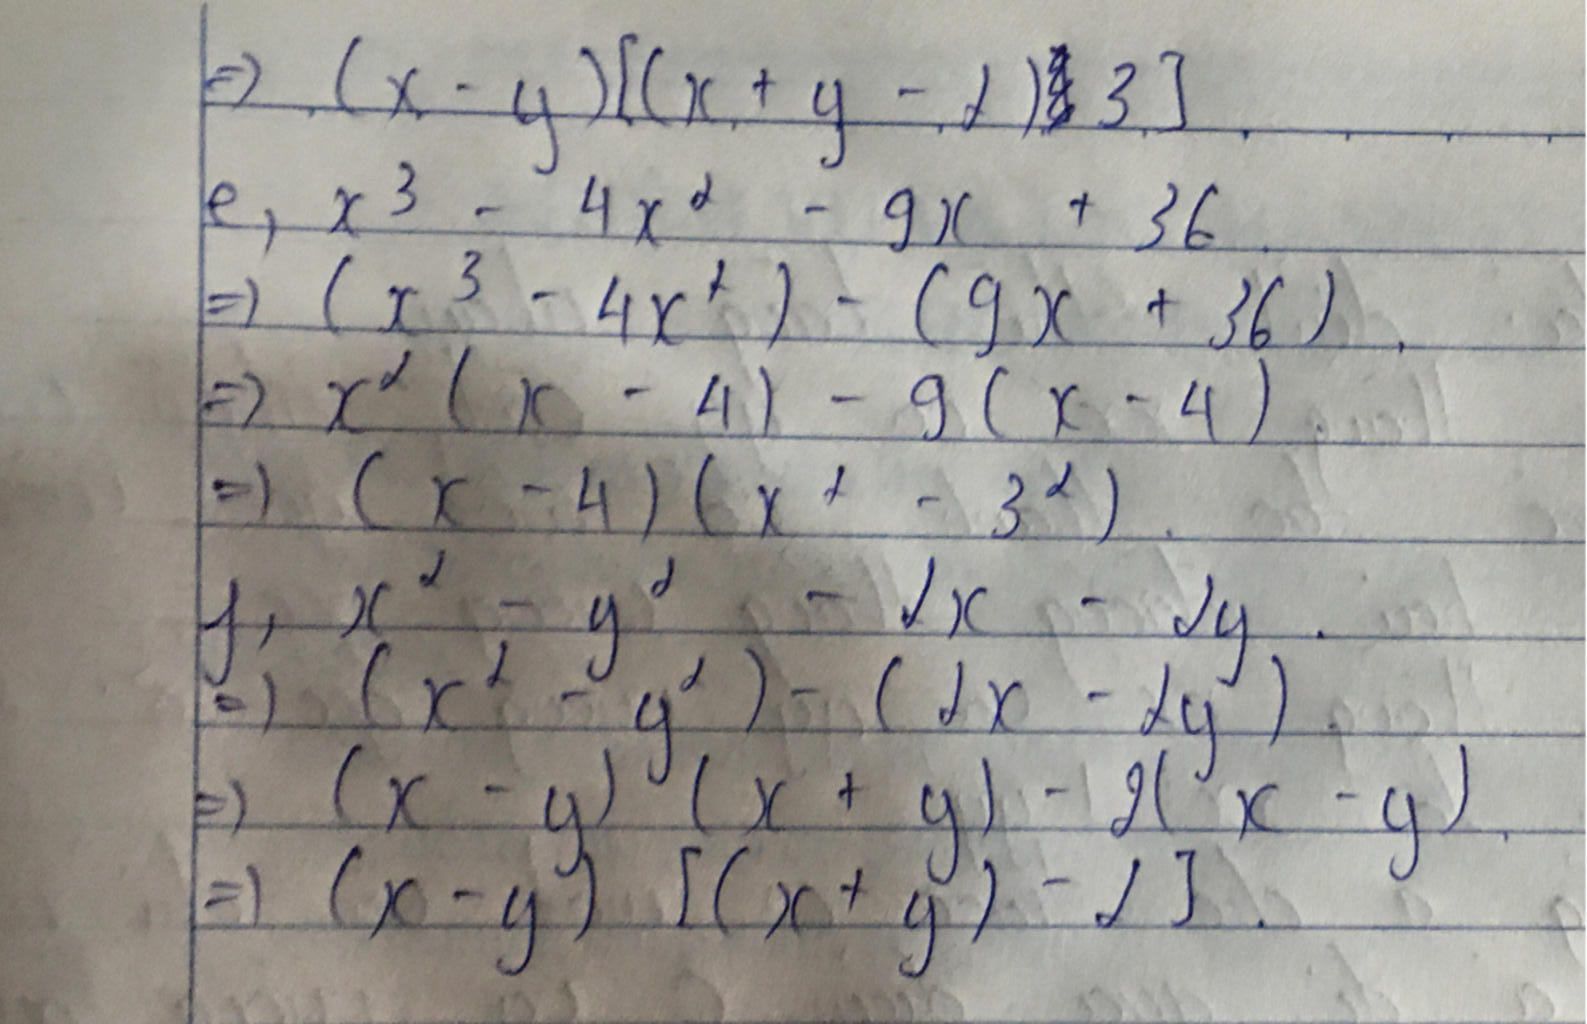 => (x - y)[(x + y - 2) 3]
e, x³ - 4x² - 9x + 36
=> (x³ - 4x²) - (9x + 36).
=> x² (x - 4) - 9(x - 4)
=> (x - 4)(x² - 3²).
f, x² - y² - 2x - 2y.
=> (x² - y²) - (2x - 2y).
=> (x - y) (x + y) - 2(x - y).
=> (x - y) [(x + y) - 2].